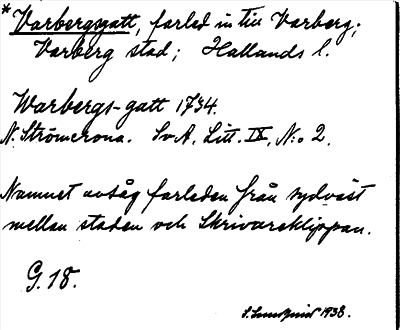 *Varbergsgatt, farled in till Varberg;
Varberg stad; Hallands l.
Warbergs-gatt 1734.
N. Strömcrona. SvA, Litt. IX, N:o 2.
Namnet avsåg farleden från sydväst
mellan staden och Skrivareklippan.
G. 18.
S. Lundquist 1938.